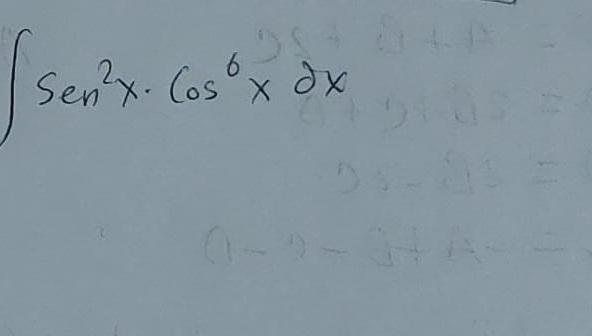 ∫ Sen²x · Cos⁶x dx